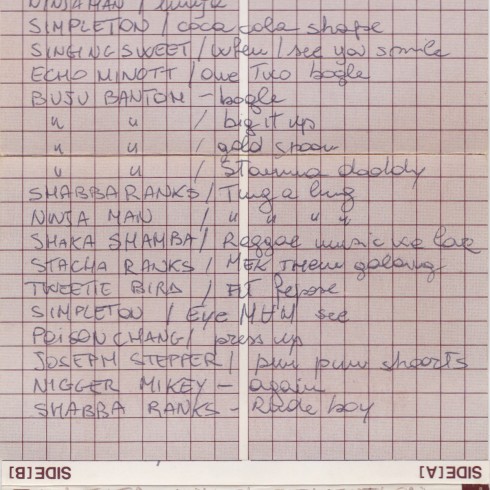 NINJAMAN /
SIMPLETON / coca cola shape
SINGING SWEET / When I see you smile
ECHO MINOTT / one Two bogle
BUJU BANTON - bogle
" " / big it up
" " / gold spoon
" " / Stamina daddy
SHABBA RANKS / Ting a ling
NINJA MAN / " " " "
SHAKA SHAMBA / Reggae music we love
STACHA RANKS / MEK THEM galang
TWEETIE BIRD / FIT Repose
SIMPLETON / Eye MAN see
POISON CHANG / press up
JOSEPH STEPPER / pum pum shoorts
NIGGER MIKEY - again
SHABBA RANKS - Rude boy
SIDE[B] SIDE[A]